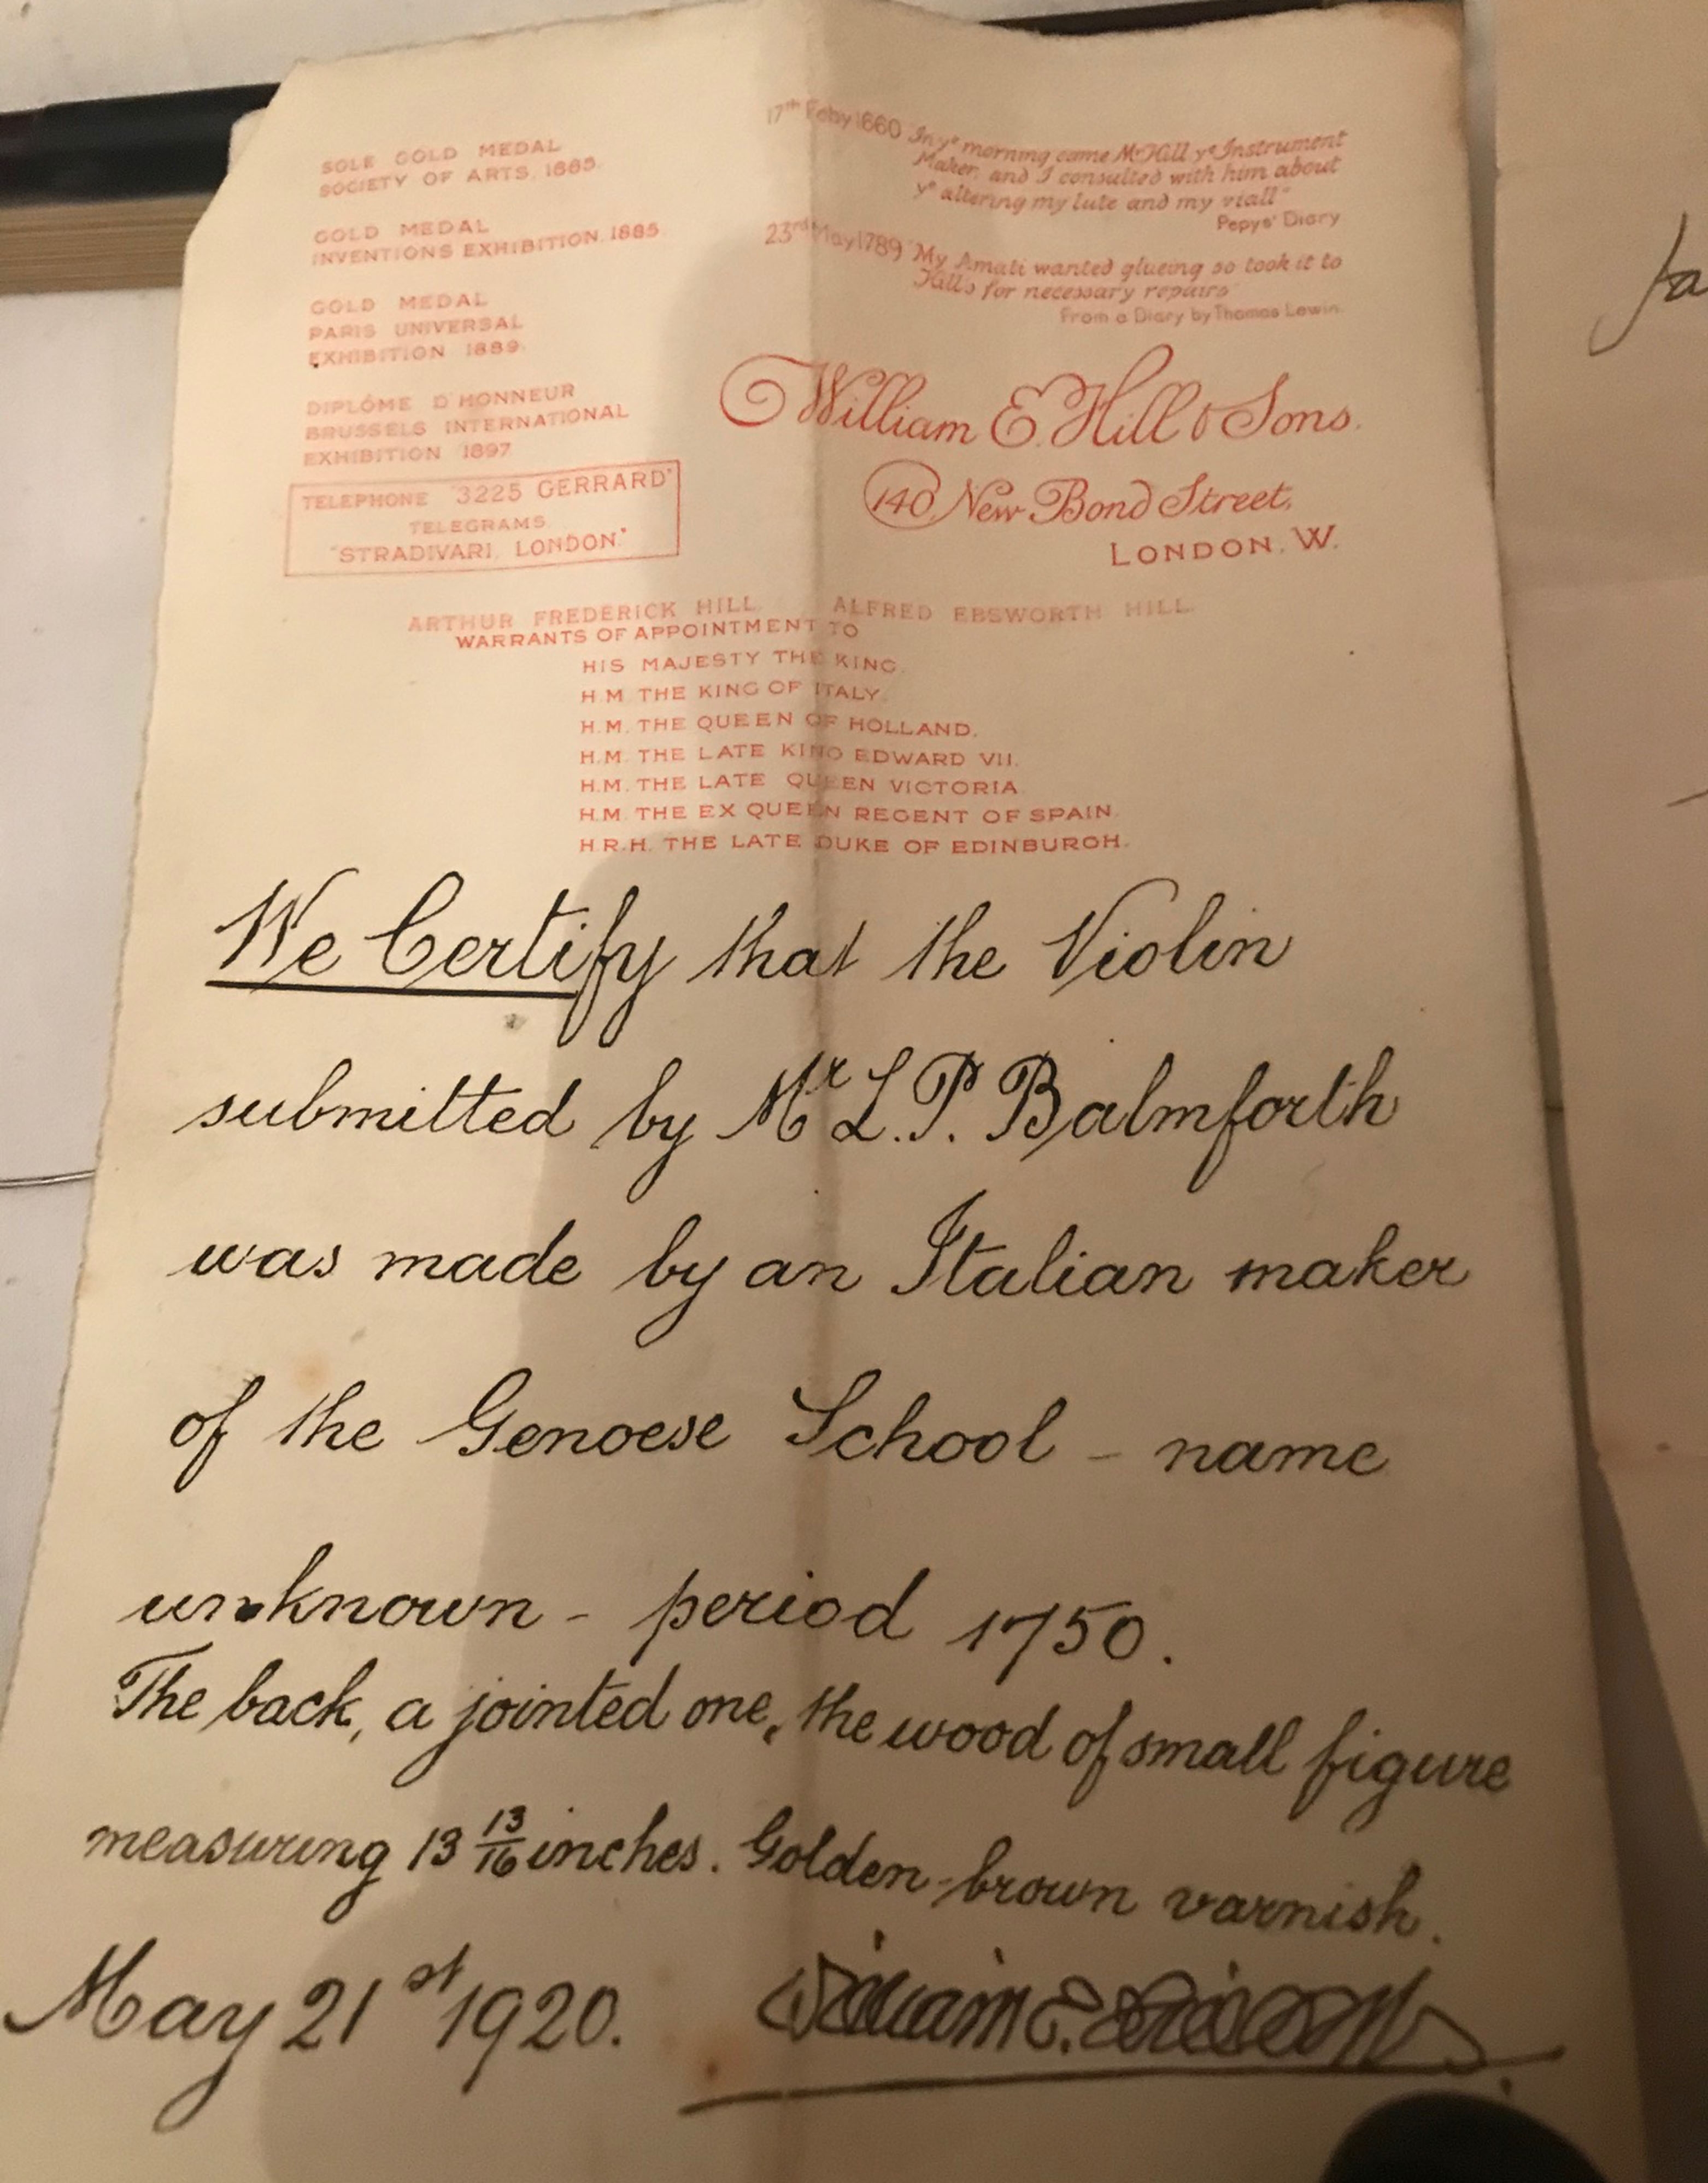 SOLE GOLD MEDAL
SOCIETY OF ARTS, 1885.
GOLD MEDAL
INVENTIONS EXHIBITION, 1885
GOLD MEDAL
PARIS UNIVERSAL
EXHIBITION 1889.
DIPLÔME D'HONNEUR
BRUSSELS INTERNATIONAL
EXHIBITION 1897
TELEPHONE "3225 GERRARD"
TELEGRAMS
"STRADIVARI, LONDON."
17th Feby 1660 "In ye morning came Mr Hill ye Instrument
Maker, and I consulted with him about
ye altering my lute and my viall"
Pepys' Diary
23rd May 1789 "My Amati wanted glueing so took it to
Hall's for necessary repairs"
From a Diary by Thomas Lewin.
William E. Hill & Sons.
140, New Bond Street,
LONDON, W.
ARTHUR FREDERICK HILL. ALFRED EBSWORTH HILL.
WARRANTS OF APPOINTMENT TO
HIS MAJESTY THE KING.
H.M. THE KING OF ITALY.
H.M. THE QUEEN OF HOLLAND.
H.M. THE LATE KING EDWARD VII.
H.M. THE LATE QUEEN VICTORIA
H.M. THE EX QUEEN REGENT OF SPAIN.
H.R.H. THE LATE DUKE OF EDINBURGH.
We Certify that the Violin
submitted by Mr L. P. Balmforth
was made by an Italian maker
of the Genoese School - name
unknown - period 1750.
The back, a jointed one, the wood of small figure
measuring 13 13/16 inches. Golden-brown varnish.
May 21st 1920.
William E.